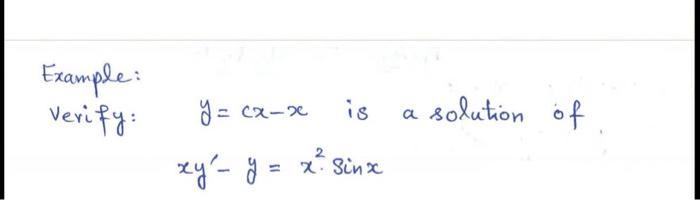 Example:
Verify: y = cx-x is a solution of
xy′- y = x². Sinx